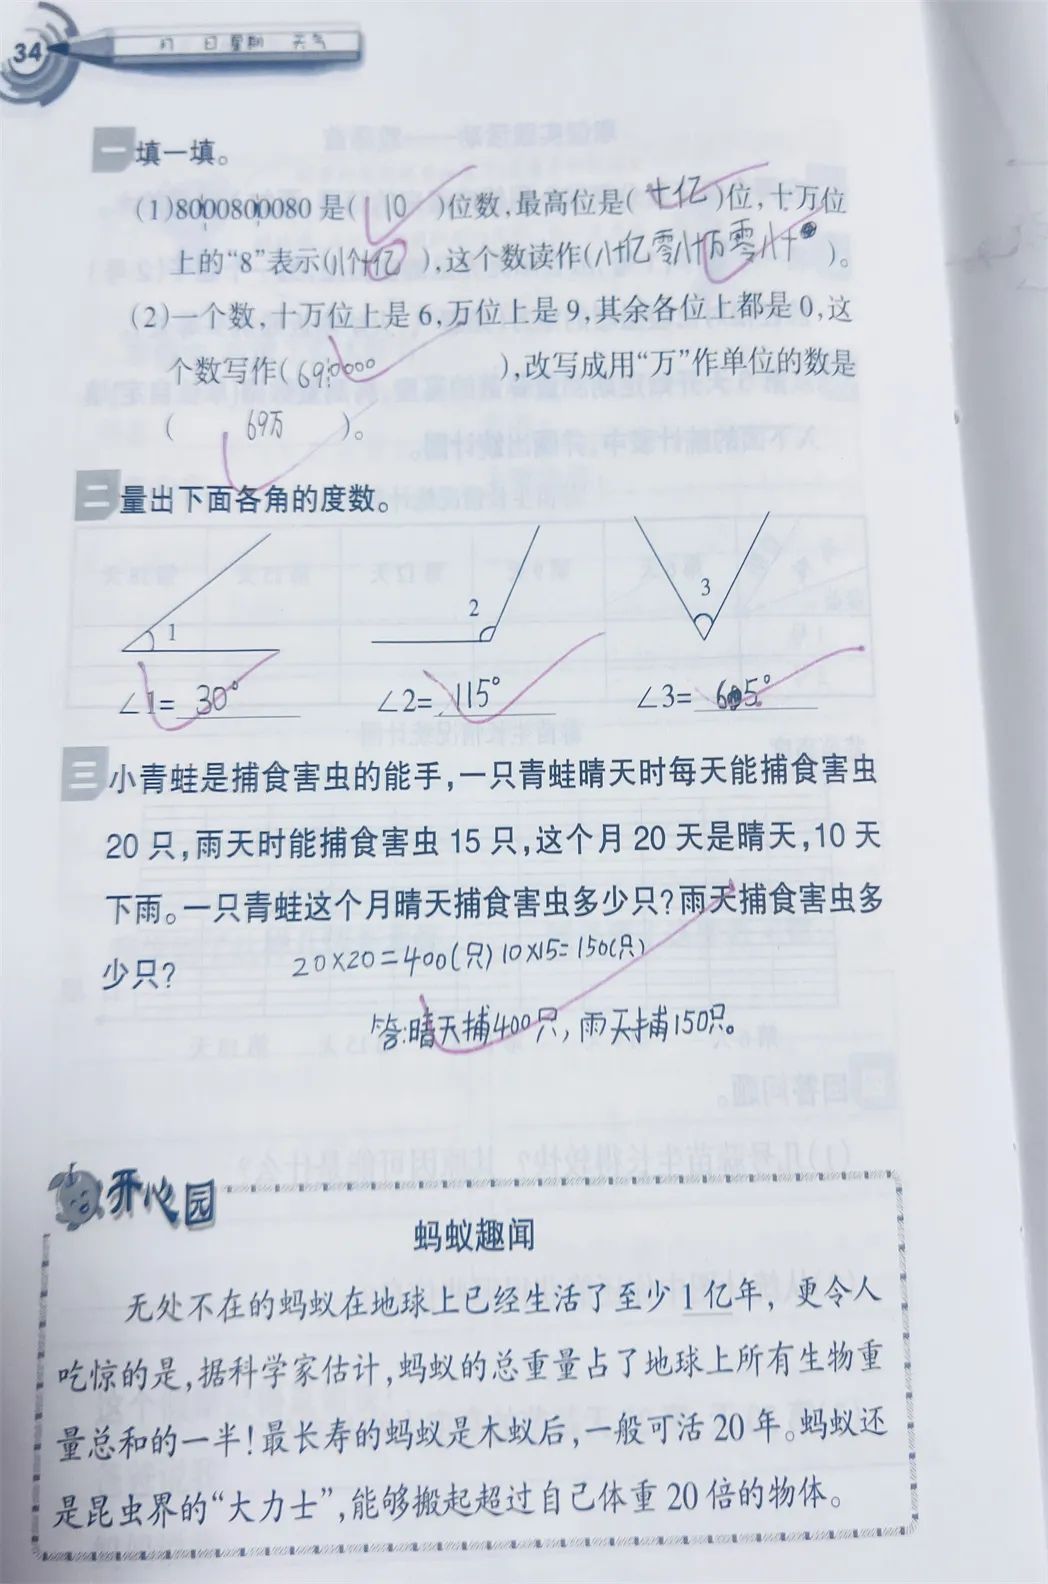 34 月 日 星期 天气
一 填一填。
(1)8000800080是( 10 )位数,最高位是( 十亿 )位,十万位
上的“8”表示(八个十亿),这个数读作(八十亿零八十万零八十 )。
(2)一个数,十万位上是6,万位上是9,其余各位上都是0,这
个数写作( 690000 ),改写成用“万”作单位的数是
( 69万 )。
二 量出下面各角的度数。
1 2 3
∠1= 30° ∠2= 115° ∠3= 65°
三 小青蛙是捕食害虫的能手,一只青蛙晴天时每天能捕食害虫
20只,雨天时能捕食害虫15只,这个月20天是晴天,10天
下雨。一只青蛙这个月晴天捕食害虫多少只?雨天捕食害虫多
少只? 20×20=400(只) 10×15=150(只)
答:晴天捕400只,雨天捕150只。
开心园
蚂蚁趣闻
无处不在的蚂蚁在地球上已经生活了至少1亿年，更令人
吃惊的是,据科学家估计,蚂蚁的总重量占了地球上所有生物重
量总和的一半!最长寿的蚂蚁是木蚁后,一般可活20年。蚂蚁还
是昆虫界的“大力士”,能够搬起超过自己体重20倍的物体。